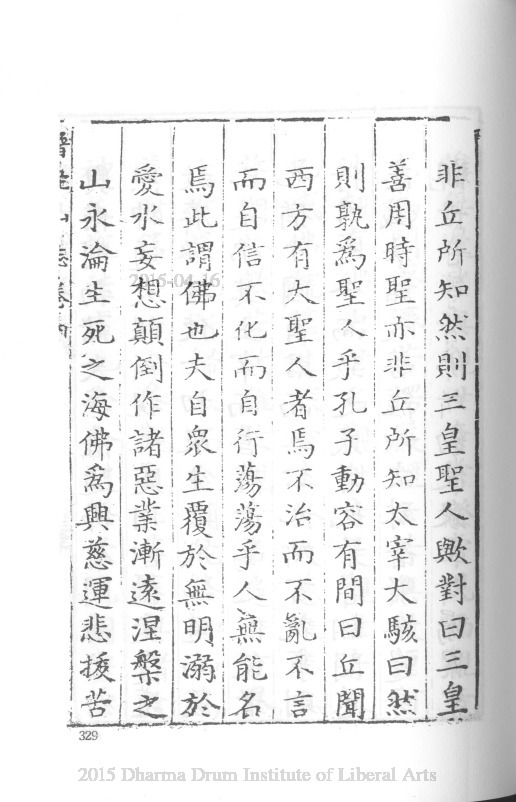 非丘所知然則三皇聖人歟對曰三皇
善用時聖亦非丘所知太宰大駭曰然
則孰爲聖人乎孔子動容有間曰丘聞
西方有大聖人者焉不治而不亂不言
而自信不化而自行蕩蕩乎人無能名
焉此謂佛也夫自衆生覆於無明溺於
愛水妄想顛倒作諸惡業漸遠涅槃之
山永淪生死之海佛爲興慈運悲拔苦
山志卷
329
2015-04-16
2015 Dharma Drum Institute of Liberal Arts